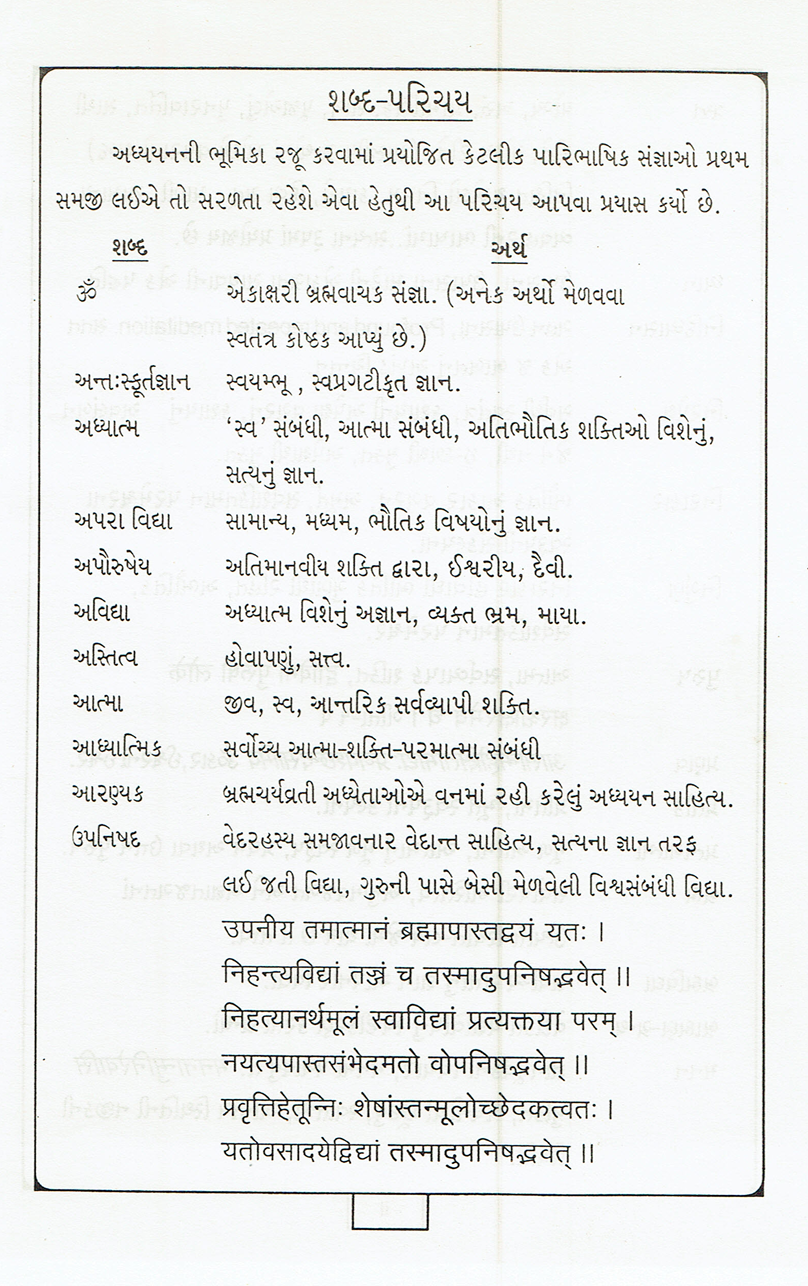 શબ્દ-પરિચય
અધ્યયનની ભૂમિકા રજૂ કરવામાં પ્રયોજિત કેટલીક પારિભાષિક સંજ્ઞાઓ પ્રથમ
સમજી લઈએ તો સરળતા રહેશે એવા હેતુથી આ પરિચય આપવા પ્રયાસ કર્યો છે.
શબ્દ અર્થ
ૐ એકાક્ષરી બ્રહ્મવાચક સંજ્ઞા. (અનેક અર્થો મેળવવા
સ્વતંત્ર કોષ્ઠક આપ્યું છે.)
અન્તઃસ્ફૂર્તજ્ઞાન સ્વયમ્ભૂ , સ્વપ્રગટીકૃત જ્ઞાન.
અધ્યાત્મ ‘સ્વ’ સંબંધી, આત્મા સંબંધી, અતિભૌતિક શક્તિઓ વિશેનું,
સત્યનું જ્ઞાન.
અપરા વિદ્યા સામાન્ય, મધ્યમ, ભૌતિક વિષયોનું જ્ઞાન.
અપૌરુષેય અતિમાનવીય શક્તિ દ્વારા, ઈશ્વરીય, દૈવી.
અવિદ્યા અધ્યાત્મ વિશેનું અજ્ઞાન, વ્યક્ત ભ્રમ, માયા.
અસ્તિત્વ હોવાપણું, સત્ત્વ.
આત્મા જીવ, સ્વ, આન્તરિક સર્વવ્યાપી શક્તિ.
આધ્યાત્મિક સર્વોચ્ચ આત્મા-શક્તિ-પરમાત્મા સંબંધી
આરણ્યક બ્રહ્મચર્યવ્રતી અધ્યેતાઓએ વનમાં રહી કરેલું અધ્યયન સાહિત્ય.
ઉપનિષદ વેદરહસ્ય સમજાવનાર વેદાન્ત સાહિત્ય, સત્યના જ્ઞાન તરફ
લઈ જતી વિદ્યા, ગુરુની પાસે બેસી મેળવેલી વિશ્વસંબંધી વિદ્યા.
उपनीय तमात्मानं ब्रह्मापास्तद्वयं यतः ।
निहन्त्यविद्यां तज्ञं च तस्मादुपनिषद्भवेत् ॥
निहत्यानर्थमूलं स्वाविद्यां प्रत्यक्तया परम् ।
नयत्यपास्तसंभेदमतो वोपनिषद्भवेत् ॥
प्रवृत्तिहेतून्निः शेषांस्तन्मूलोच्छेदकत्वतः ।
यतोवसादयेद्विद्यां तस्मादुपनिषद्भवेत् ॥